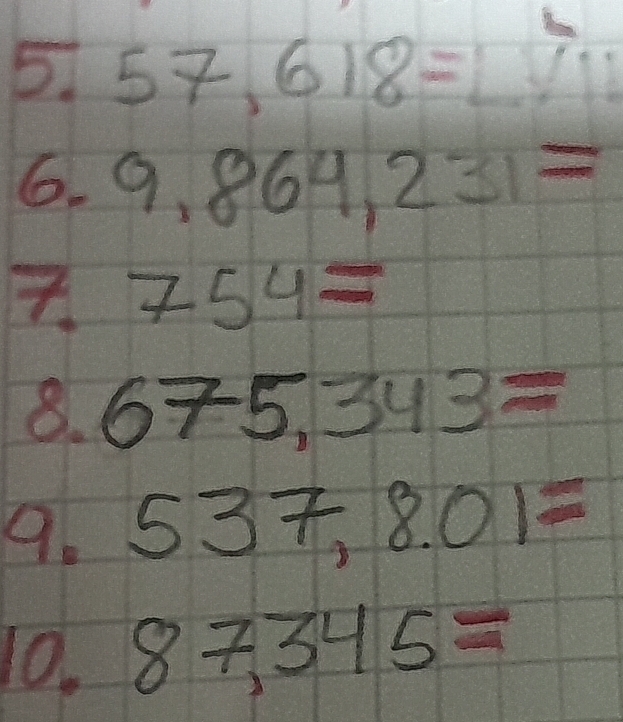 5. 57,618 = LVII
6. 9,864,231 =
7. 754 =
8. 675,343 =
9. 537,8.01 =
10. 87,345 =